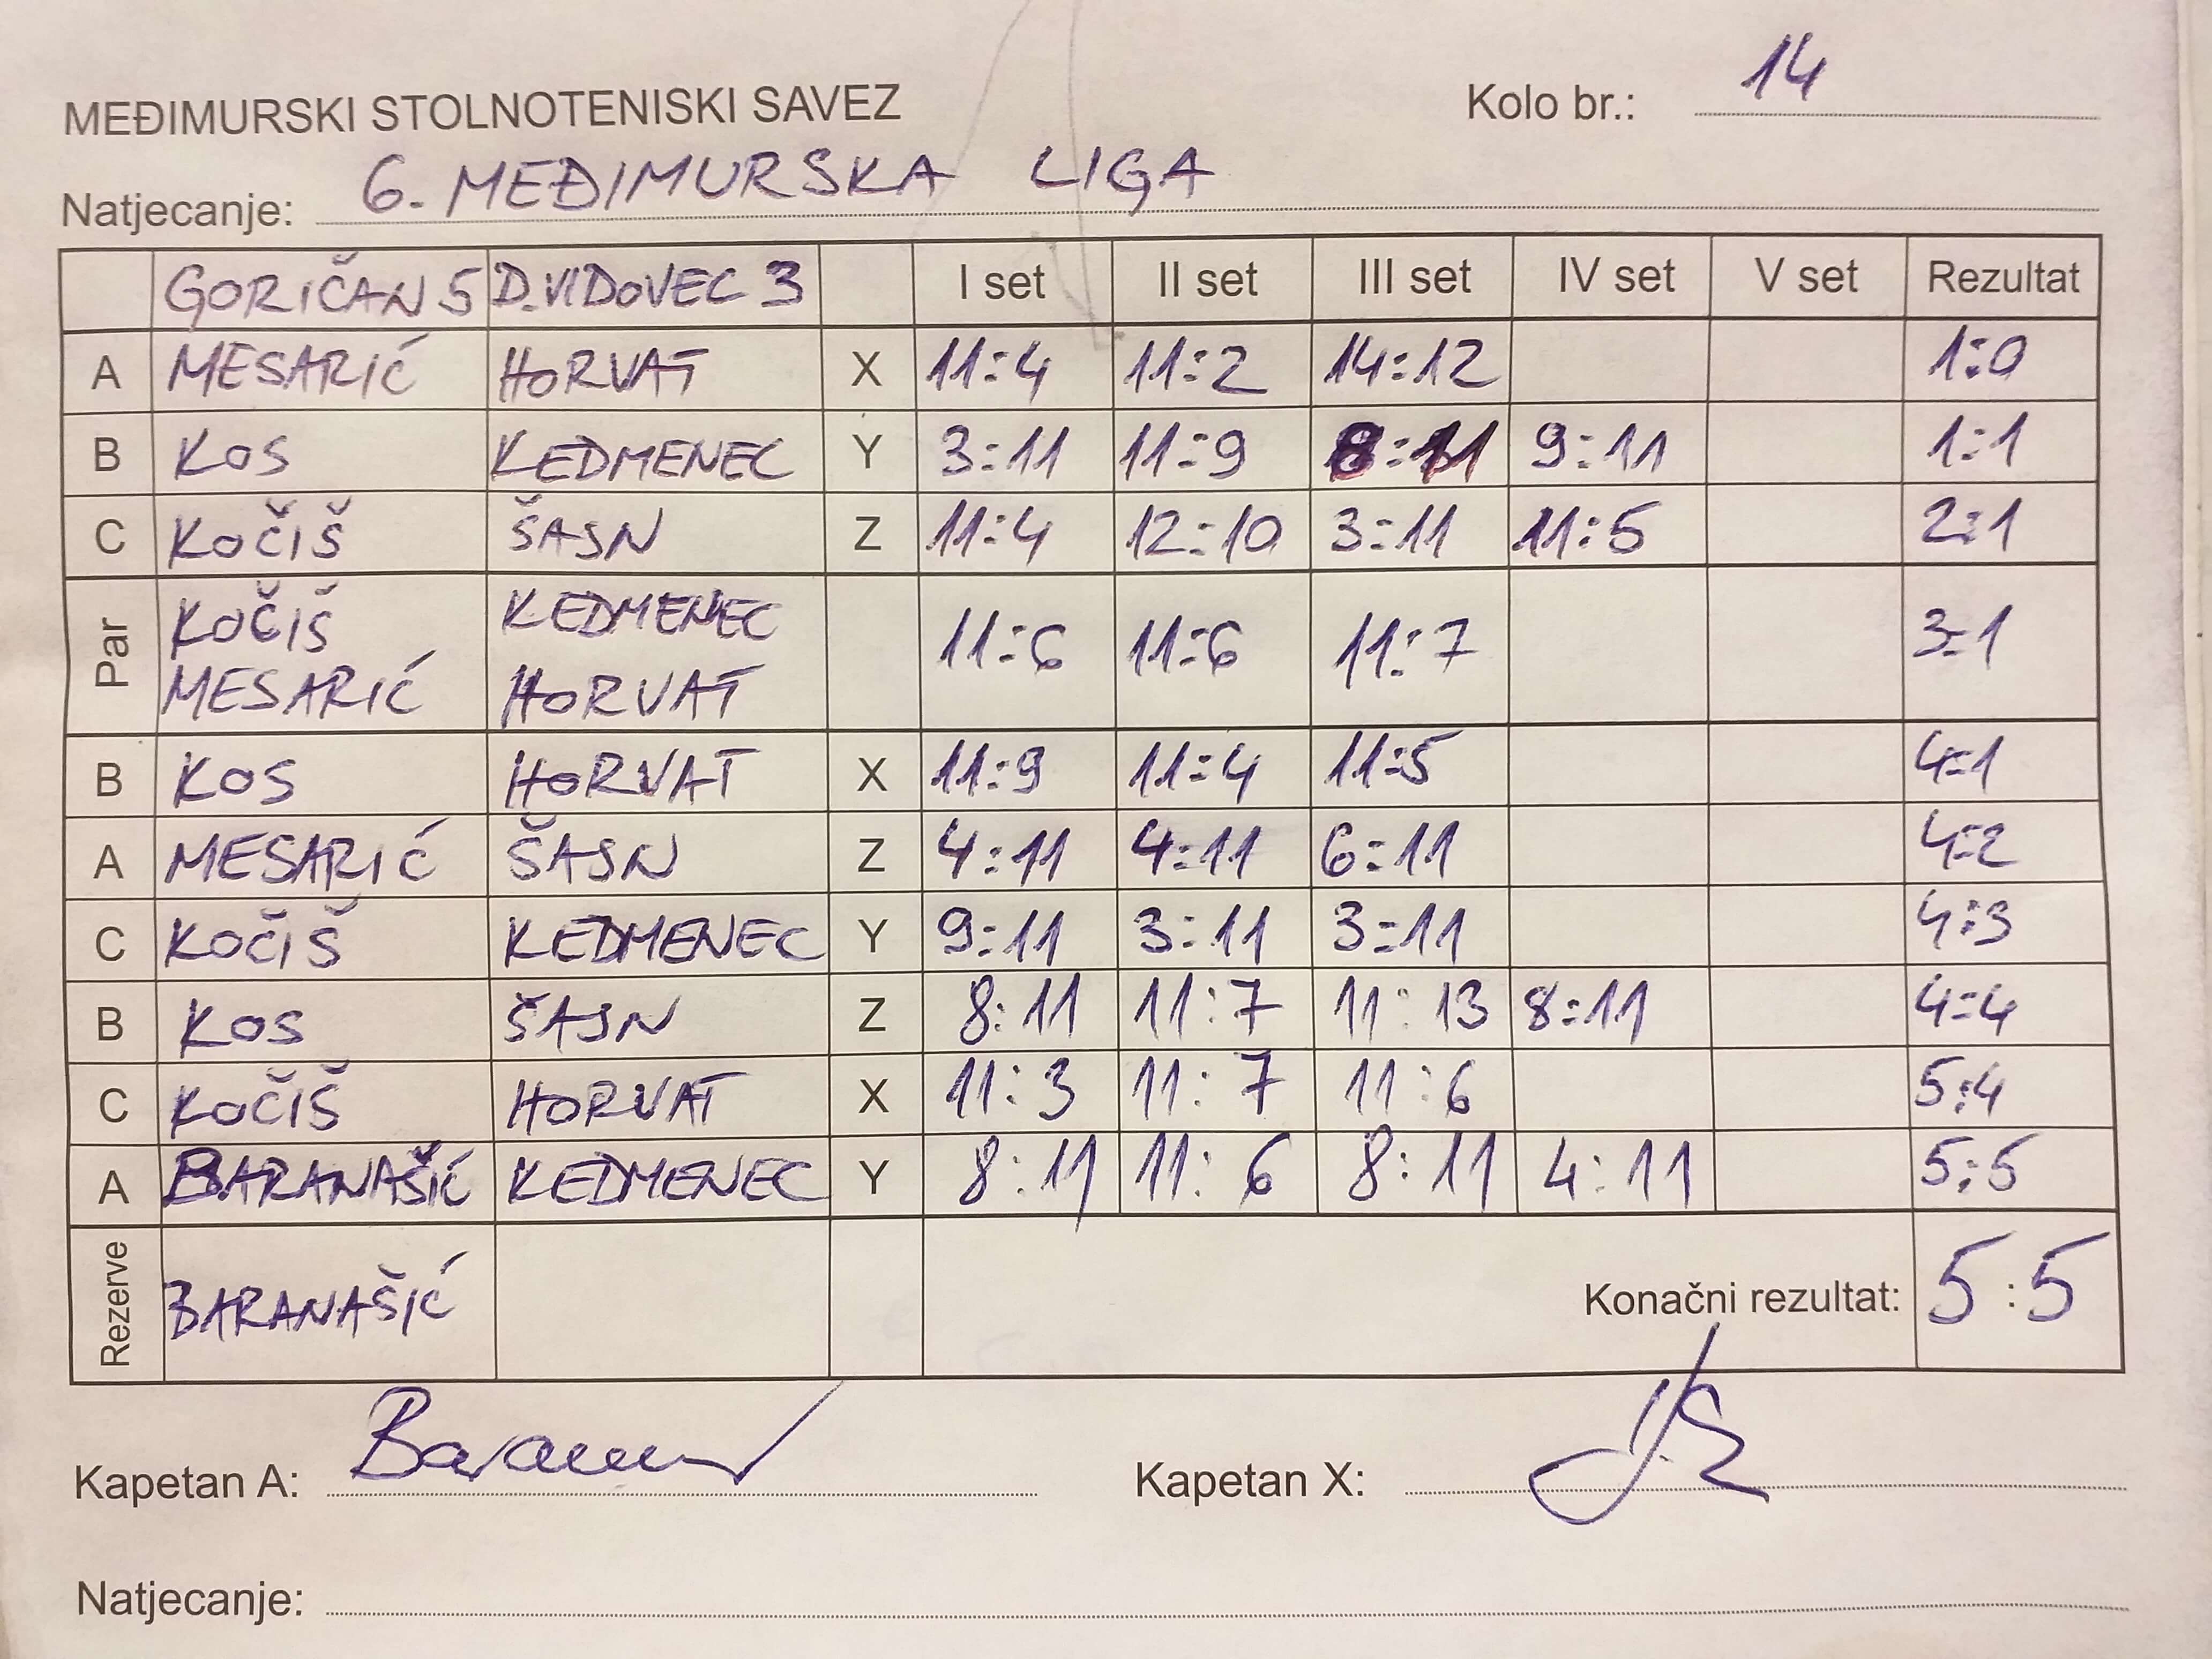 MEĐIMURSKI STOLNOTENISKI SAVEZ Kolo br.: 14
Natjecanje: 6. MEĐIMURSKA LIGA
GORIČAN 5 D. VIDOVEC 3 I set II set III set IV set V set Rezultat
A MESARIĆ HORVAT X 11:4 11:2 14:12 1:0
B KOS KEDMENEC Y 3:11 11:9 8:11 9:11 1:1
C KOČIŠ ŠASN Z 11:4 12:10 3:11 11:5 2:1
Par KOČIŠ KEDMENEC 11:6 11:6 11:7 3:1
MESARIĆ HORVAT
B KOS HORVAT X 11:9 11:4 11:5 4:1
A MESARIĆ ŠASN Z 4:11 4:11 6:11 4:2
C KOČIŠ KEDMENEC Y 9:11 3:11 3:11 4:3
B KOS ŠASN Z 8:11 11:7 11:13 8:11 4:4
C KOČIŠ HORVAT X 11:3 11:7 11:6 5:4
A BARANAŠIĆ KEDMENEC Y 8:11 11:6 8:11 4:11 5:5
Rezerve BARANAŠIĆ Konačni rezultat: 5:5
Kapetan A: Kapetan X:
Natjecanje: